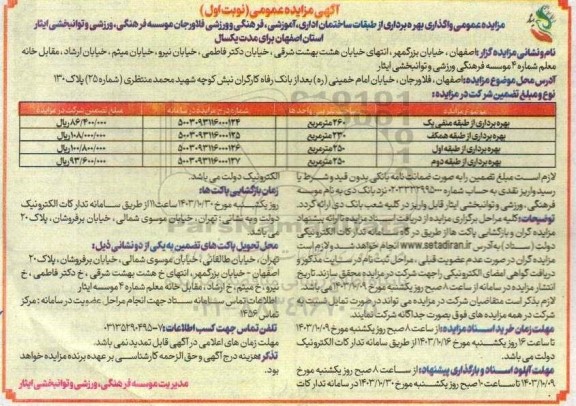 آگهی مزایده عمومی (نوبت اول)
مزایده عمومی واگذاری بهره برداری از طبقات ساختمان اداری، آموزشی، فرهنگی و ورزشی فلاورجان موسسه فرهنگی، ورزشی و توانبخشی ایثار
استان اصفهان برای مدت یکسال
نام و نشانی مزایده گزار: اصفهان، خیابان بزرگمهر، انتهای خیابان هشت بهشت شرقی، خیابان دکتر فاطمی، خیابان نیرو، خیابان میثم، خیابان ارشاد، مقابل خانه
معلم شماره ۴ موسسه فرهنگی ورزشی و توانبخشی ایثار
آدرس محل موضوع مزایده: اصفهان، فلاورجان، خیابان امام خمینی (ره) بعد از بانک رفاه کارگران نبش کوچه شهید محمد منتظری (شماره ۲۵) پلاک ۱۳۰
نوع و مبلغ تضمین شرکت در مزایده:
موضوع مزایده شماره درج مزایده در سامانه مبلغ تضمین شرکت در مزایده
بهره برداری از طبقه منفی یک ۲۶۰ مترمربع ۵۰۰۳۰۹۳۱۱۶۰۰۰۱۲۴ ۸۶/۴۰۰/۰۰۰ ریال
بهره برداری از طبقه همکف ۲۳۰ مترمربع ۵۰۰۳۰۹۳۱۱۶۰۰۰۱۲۵ ۱۰۸/۰۰۰/۰۰۰ ریال
بهره برداری از طبقه اول ۲۵۰ مترمربع ۵۰۰۳۰۹۳۱۱۶۰۰۰۱۲۶ ۱۰۰/۸۰۰/۰۰۰ ریال
بهره برداری از طبقه دوم ۲۵۰ مترمربع ۵۰۰۳۰۹۳۱۱۶۰۰۰۱۲۷ ۹۳/۶۰۰/۰۰۰ ریال
لازم است مبلغ تضمین را به صورت ضمانت نامه بانکی بدون قید و شرط یا
رسید واریز نقدی به حساب شماره نزد بانک دی به نام موسسه
فرهنگی، ورزشی و توانبخشی ایثار قابل واریز در کلیه شعب بانک دی ارائه گردد.
توضیحات: کلیه مراحل برگزاری مزایده از دریافت اسناد مزایده تا ارائه پیشنهاد
مزایده گران و بازگشایی پاکت ها از طریق درگاه سامانه تدارکات الکترونیک
دولت (ستاد) به آدرس www.setadiran.ir انجام خواهد شد و لازم است
مزایده گران در صورت عدم عضویت قبلی، مراحل ثبت نام در سایت مذکور و
دریافت گواهی امضای الکترونیکی را جهت شرکت در مزایده محقق سازند. تاریخ
انتشار مزایده در سامانه از ساعت ۸ صبح روز یکشنبه مورخ ۱۴۰۳/۱۰/۰۹ می باشد.
لازم بذکر است متقاضیان شرکت در مزایده می توانند در صورت تمایل نسبت به
شرکت در همه مزایده های فوق بصورت جداگانه شرکت نمایند.
مهلت زمان خرید اسناد مزایده: از ساعت ۸ صبح روز یکشنبه مورخ ۱۴۰۳/۱۰/۰۹
تا ساعت ۱۶ روز یکشنبه مورخ ۱۴۰۳/۱۰/۱۶ از طریق سامانه تدارکات الکترونیک
دولت می باشد.
مهلت آپلود اسناد و بارگذاری پیشنهاد: از ساعت ۸ صبح روز یکشنبه مورخ
۱۴۰۳/۱۰/۰۹ تا ساعت ۱۰ صبح روز یکشنبه مورخ ۱۴۰۳/۱۰/۳۰ در سامانه تدارکات
الکترونیک دولت می باشد.
زمان بازگشایی پاکت ها:
روز یکشنبه مورخ ۱۴۰۳/۱۰/۳۰ ساعت ۱۱ از طریق سامانه تدارکات الکترونیک
دولت و به نشانی: تهران، خیابان موسوی شمالی، خیابان پرفروشان، پلاک ۲۰
می باشد.
محل تحویل پاکت های تضمین به یکی از دو نشانی ذیل:
تهران، خیابان طالقانی، خیابان موسوی شمالی، خیابان پرفروشان، پلاک ۲۰
اصفهان - خیابان بزرگمهر، انتهای خ هشت بهشت شرقی، خ دکتر فاطمی، خ
نیرو، خ میثم، خ ارشاد، مقابل خانه معلم شماره ۴ موسسه ایثار
اطلاعات تماس سامانه ستاد جهت انجام مراحل عضویت در سامانه: مرکز
تماس ۱۴۵۶
تلفن تماس جهت کسب اطلاعات: ۰۳۱۳۵۲۹۰۴۹۵-۷
مهلت زمان های اعلامی در آگهی قابل تمدید نمی باشد.
تذکر: هزینه درج آگهی و حق الزحمه کارشناسی بر عهده برنده مزایده خواهد
بود.
مدیریت موسسه فرهنگی، ورزشی و توانبخشی ایثار